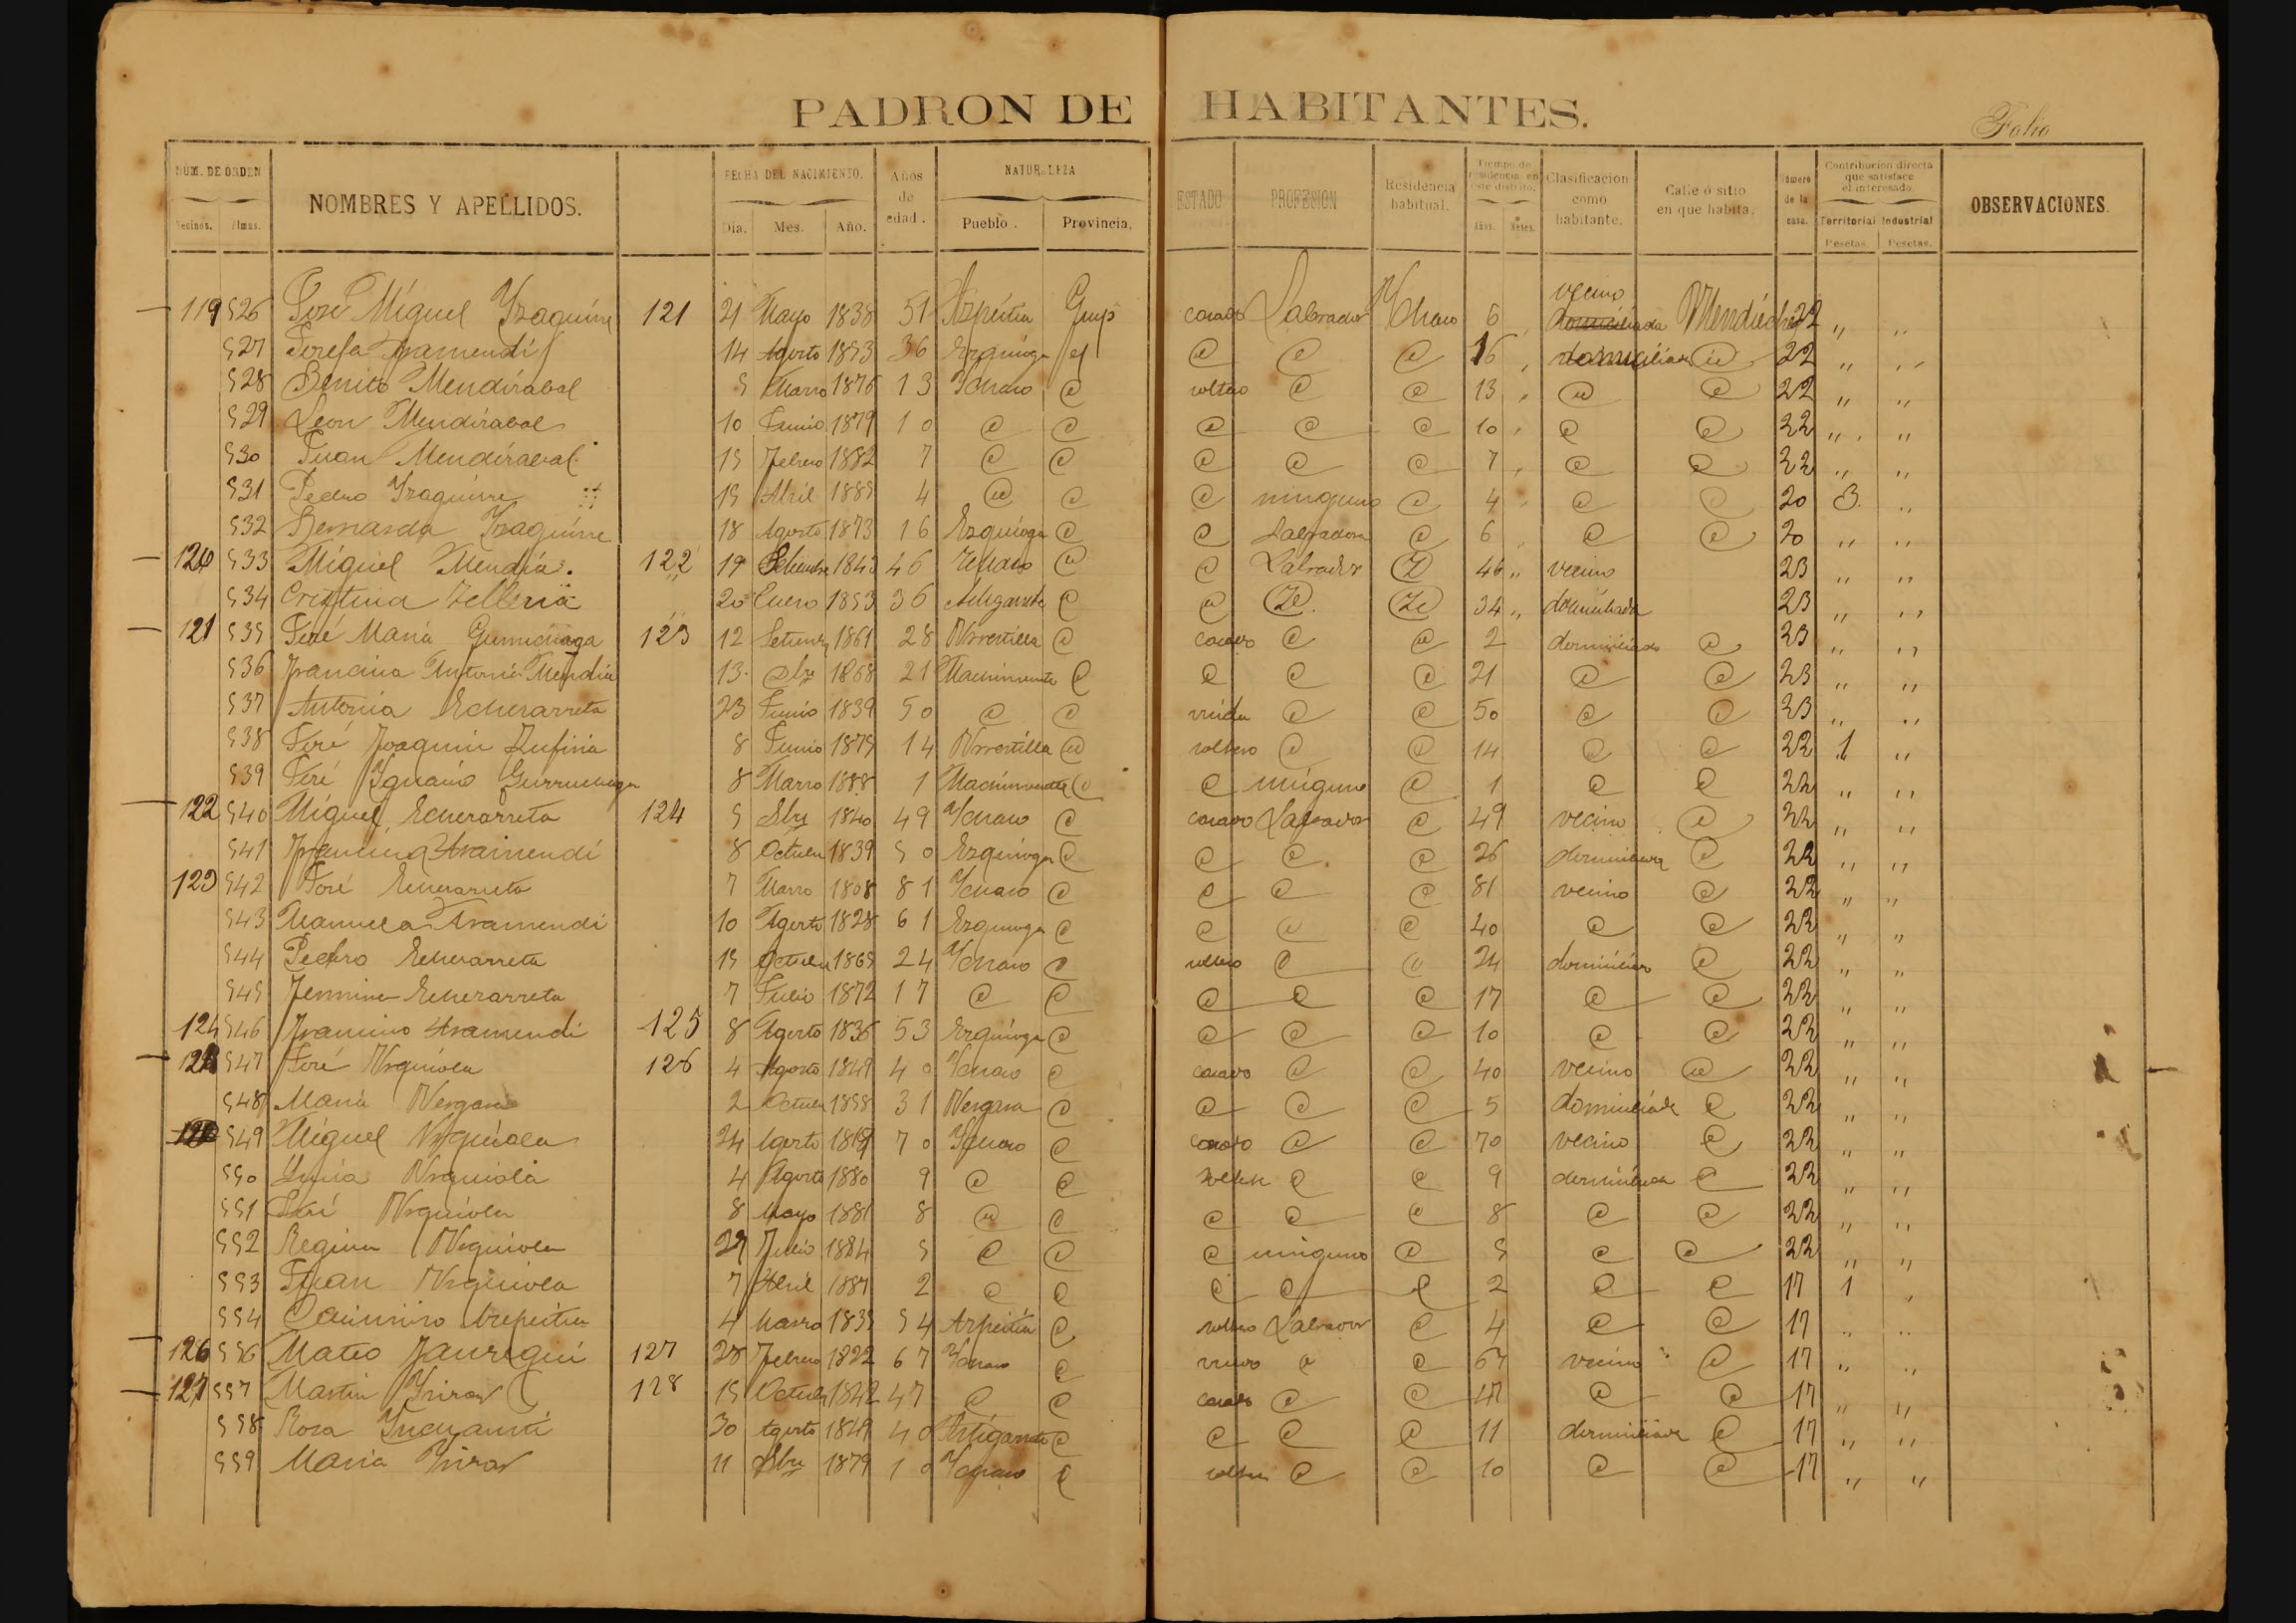 PADRON DE HABITANTES.
Folio
NUM. DE ORDEN NOMBRES Y APELLIDOS. FECHA DEL NACIMIENTO. Años de edad. NATURALEZA ESTADO PROFESION Residencia habitual. Tiempo de residencia en este distrito. Clasificacion como habitante. Calle ó sitio en que habita. Número de la casa. Contribucion directa que satisface el interesado. OBSERVACIONES.
Vecinos. Almas. Dia. Mes. Año. Pueblo. Provincia. Años. Meses. Territorial Industrial
Pesetas. Pesetas.
vecino
119 526 José Miguel Yzaguirre 121 21 Mayo 1838 51 Azpeitia Guip casado Labrador Ychaso 6 domiciliada 22 " "
527 Josefa Aramendi 14 Agosto 1853 36 Ezquioga @ @ @ 16 domiciliada @ 22 " "
528 Benito Mendirabal 5 Marzo 1876 13 Ychaso @ soltero @ @ 13 @ @ 22 " "
529 Leon Mendirabal 10 Junio 1879 10 @ @ @ @ @ 10 @ @ 22 " "
530 Juan Mendirabal 15 Febrero 1882 7 @ @ @ @ @ 7 @ @ 22 " "
531 Pedro Yzaguirre 15 Abril 1885 4 @ @ @ ninguno @ 4 @ @ 20 3 "
532 Bernarda Yzaguirre 18 Agosto 1873 16 Ezquioga @ @ Labradora @ 6 @ @ 20 " "
120 533 Miguel Mendia. 122 19 Setiembre 1843 46 Ychaso @ @ Labrador @ 46 " vecino 23 " "
534 Cristina Telleria 20 Enero 1853 36 @ @ @ @ 34 " domiciliada 23 " "
121 535 José Maria 123 12 1861 28 Urrestilla @ casado @ @ 2 domiciliado @ 23 " "
536 Francisca Antonia Mendia 13 1868 21 Machinventa @ @ @ @ 21 @ @ 23 " "
537 Antonia Echezarreta 23 Junio 1839 50 @ @ viuda @ @ 50 @ @ 23 " "
538 José Joaquin 8 Junio 1875 14 Urrestilla @ soltero @ @ 14 @ @ 22 1 "
539 José Ygnacio Gurruchaga 8 Marzo 1888 1 Machinventa @ @ ninguno @ 1 @ @ 22 " "
122 540 Miguel Echezarreta 124 5 1840 49 Ychaso @ casado Labrador @ 49 vecino @ 22 " "
541 Francisca Aramendi 8 Octubre 1839 50 Ezquioga @ @ @ @ 26 domiciliada @ 22 " "
123 542 José Echezarreta 7 Marzo 1808 81 Ychaso @ @ @ @ 81 vecino @ 22 " "
543 Manuela Aramendi 10 Agosto 1828 61 Ezquioga @ @ @ @ 40 @ @ 22 " "
544 Pedro Echezarreta 15 Octubre 1865 24 Ychaso @ soltero @ @ 24 domiciliado @ 22 " "
545 Echezarreta 7 Julio 1872 17 @ @ @ @ @ 17 @ @ 22 " "
124 546 Francisco Aramendi 125 8 Agosto 1836 53 Ezquioga @ @ @ @ 10 @ @ 22 " "
547 José Urquiola 126 4 Agosto 1849 40 Ychaso @ casado @ @ 40 vecino @ 22 " "
548 Maria Vergara 2 Octubre 1858 31 Vergara @ @ @ @ 5 domiciliada @ 22 " "
549 Miguel Urquiola 24 Agosto 1819 70 Ychaso @ casado @ @ 70 vecino @ 22 " "
550 Urquiola 4 Agosto 1880 9 @ @ @ @ 9 domiciliada @ 22 " "
551 José Urquiola 8 Mayo 1881 8 @ @ @ @ @ 8 @ @ 22 " "
552 Regina Urquiola 29 Julio 1884 5 @ @ @ ninguno @ 5 @ @ 22 " "
553 Juan Urquiola 7 Abril 1887 2 @ @ @ @ @ 2 @ @ 17 1 "
554 Casimiro 4 Marzo 1835 54 Azpeitia @ soltero Labrador @ 4 @ @ 17 " "
126 556 Mateo Jauregui 127 28 Febrero 1822 67 Ychaso @ viudo @ @ 67 vecino @ 17 " "
127 557 Martin 128 15 Octubre 1842 47 @ @ casado @ @ 47 @ @ 17 " "
558 Rosa 30 Agosto 1849 40 @ @ @ @ 11 domiciliada @ 17 " "
559 Maria 11 1879 10 Ychaso @ soltera @ @ 10 @ @ 17 " "